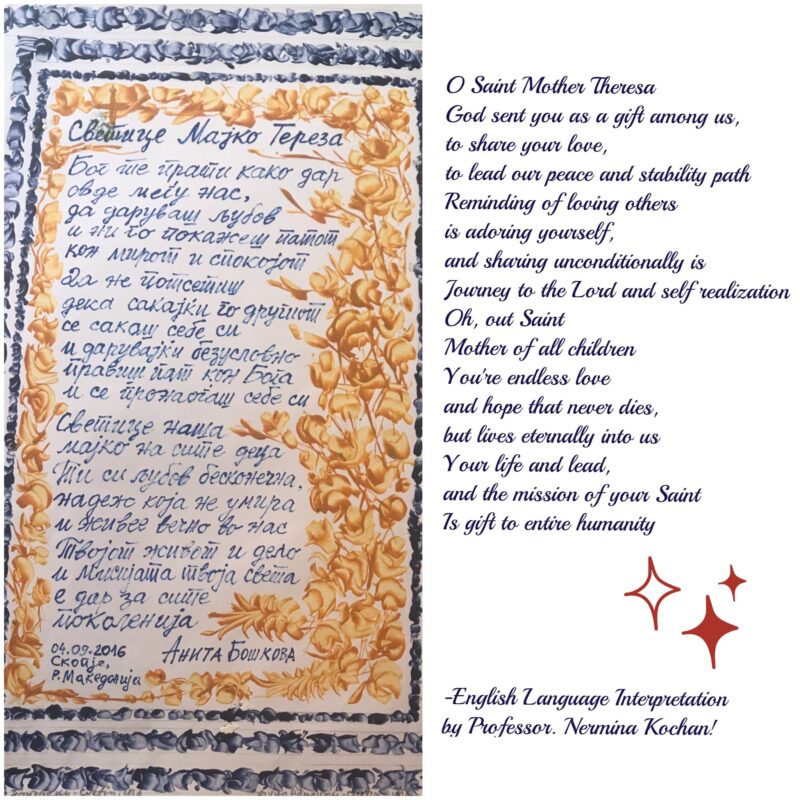 Светице Мајко Тереза
Бог те прати како дар
овде меѓу нас,
да даруваш љубов
и ни го покажеш патот
кон мирот и спокојот
Да не потсетиш
дека сакајќи го другиот
се сакаш себе си
и дарувајќи безусловно
правиш пат кон Бога
и се пронаоѓаш себе си
Светице наша
мајко на сите деца
Ти си љубов бесконечна,
надеж која не умира
и живее вечно во нас
Твојот живот и дело
и мисијата твоја света
е дар за сите
поколенија
04.09.2016
Скопје,
Р. Македонија
Анита Бошкова
O Saint Mother Theresa
God sent you as a gift among us,
to share your love,
to lead our peace and stability path
Reminding of loving others
is adoring yourself,
and sharing unconditionally is
Journey to the Lord and self realization
Oh, out Saint
Mother of all children
You're endless love
and hope that never dies,
but lives eternally into us
Your life and lead,
and the mission of your Saint
Is gift to entire humanity
-English Language Interpretation
by Professor. Nermina Kochan!